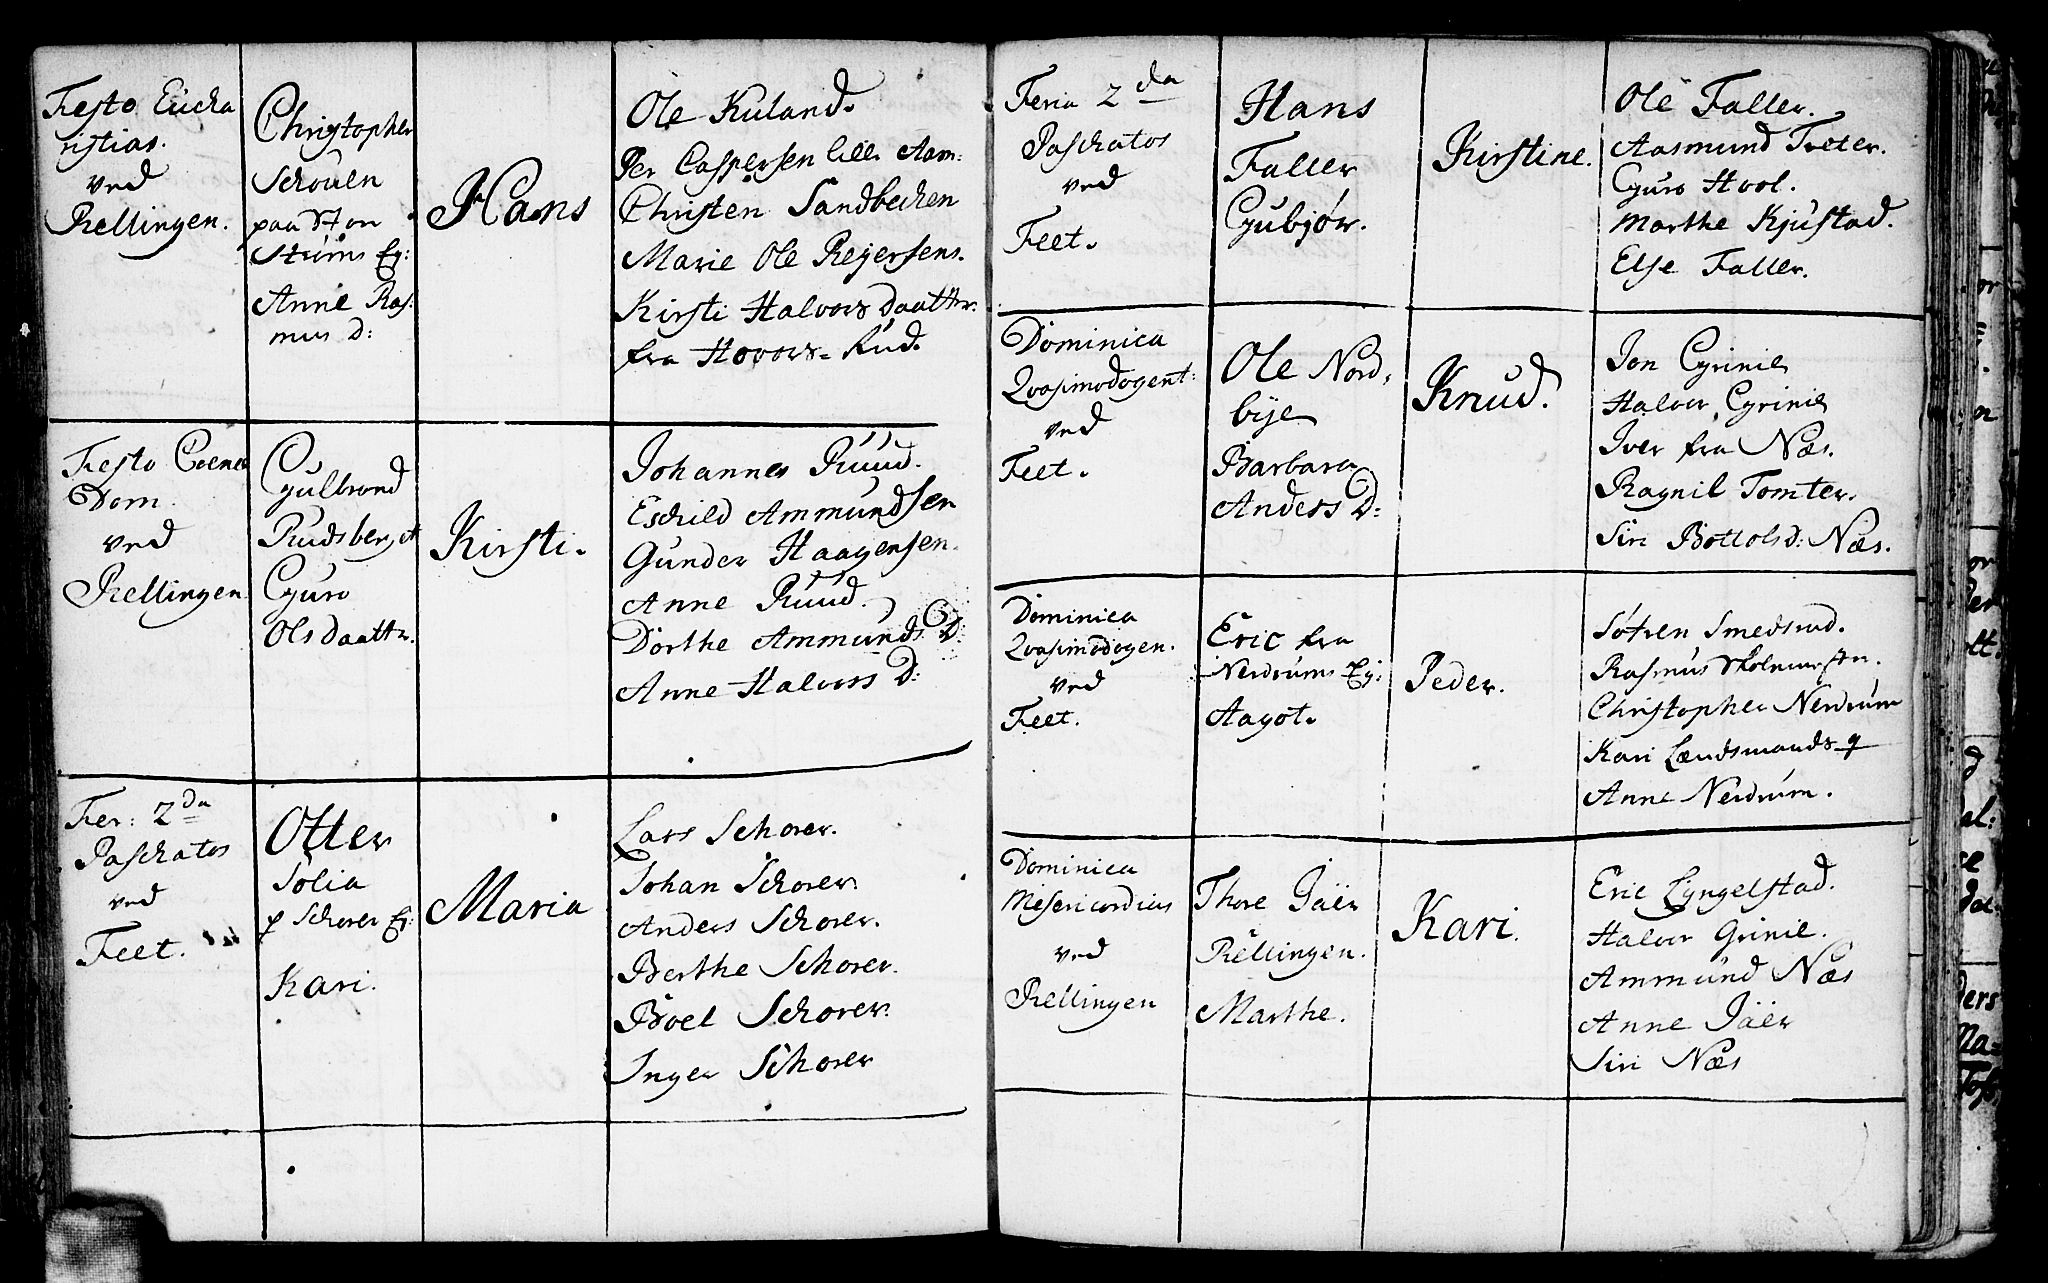 Festo Eucha
ristias.
ved
Rellingen.
Christopher
Schouen
paa
Strüms Eg:
Anne Ras
mus D:
Hans
Ole Kuland.
Per Caspersen Lille Aam:
Christen Sandbechen
Marie Ole Rejersens.
Kirsti Halvors Daatter.
fra Hovors-Rud.
Festo Coenæ
Dom.
ved
Rellingen
Gulbrand
Rudsberg
Guro
Ols Daatter.
Kirsti.
Johannes Ruud.
Eschild Ammundsen
Gunder Haagensen.
Anne Ruud.
Dorthe Ammunds D:
Anne Halvors D:
Fer: 2da
Paschatos
ved
Feet.
Otter
Solia
p Schorer Eg:
Kari.
Maria
Lars Schorer.
Johan Schorer.
Anders Schorer.
Berthe Schorer.
Boel Schorer.
Inger Schorer
Feria 2da
Paschatos
ved
Feet.
Hans
Faller
Gubjør.
Kirstine.
Ole Faller.
Aasmund Treter.
Guro Hool.
Marthe Kjustad.
Else Faller.
Dominica
Qvasimodogent:
ved
Feet.
Ole Nord,
bye
Barbara
Anders D:
Knud.
Jon Grinie
Halver Grinie
Iver fra Næs.
Ragnil Tomter.
Siri Bottols d: Næs.
Dominica
Qvasimodogen.
ved
Feet.
Eric fra
Nerdrums Eg:
Aagot.
Peder.
Søfren Smedsrud.
Rasmus Skolemester.
Christopher Nerdrum
Kari Lændsmands
Anne Nerdrum.
Dominica
Misericordias
ved
Rellingen
Thore Jäer
Rellingen.
Marthe.
Kari.
Eric Lyngelstad.
Halver Grinie.
Ammund Næs
Anne Jäer
Siri Næs